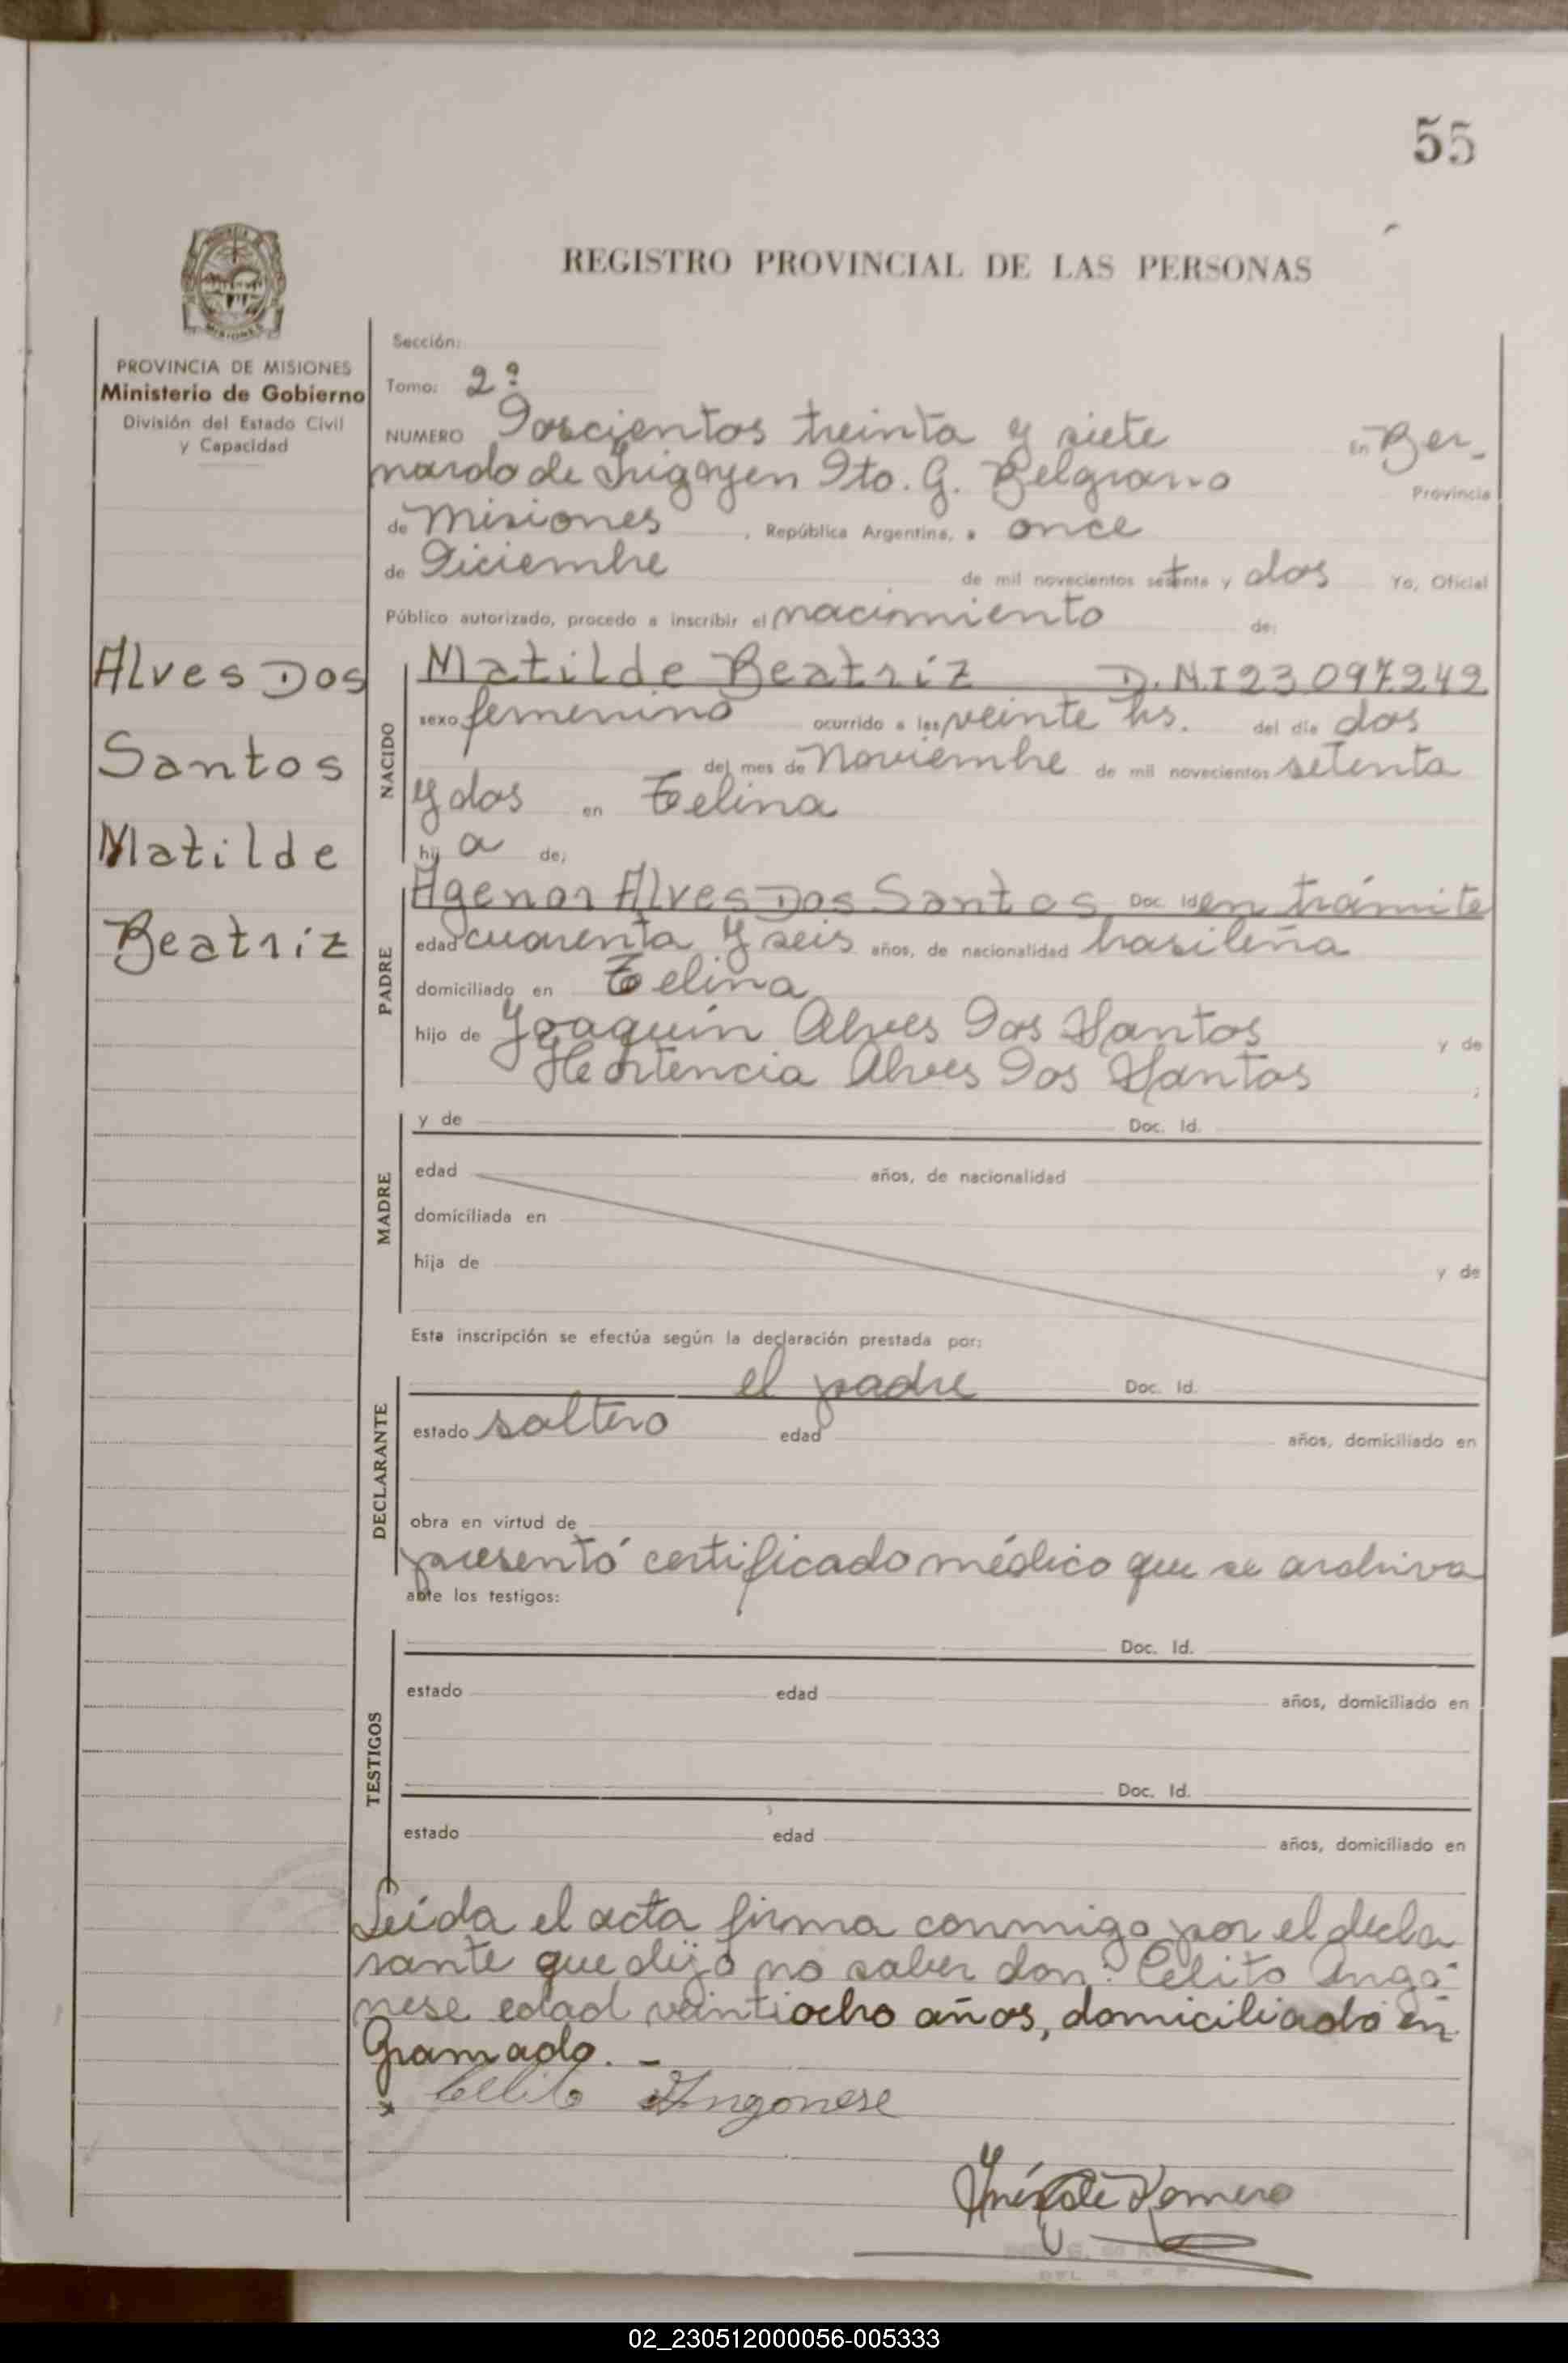 55
REGISTRO PROVINCIAL DE LAS PERSONAS
MISIONES
PROVINCIA DE MISIONES
Ministerio de Gobierno
División del Estado Civil
y Capacidad
Alves Dos
Santos
Matilde
Beatriz
Sección:
Tomo: 2º
NUMERO Doscientos treinta y siete En Ber-
nardo de Irigoyen Dto. G. Belgrano Provincia
de Misiones, República Argentina, a once
de Diciembre de mil novecientos setenta y dos Yo, Oficial
Público autorizado, procedo a inscribir el nacimiento de:
NACIDO
Matilde Beatriz D.N.I 23 097.242
sexo femenino ocurrido a las veinte hs. del día dos
del mes de Noviembre de mil novecientos setenta
y dos en Celina
hij a de;
PADRE
Agenor Alves Dos Santos Doc. Id en trámite
edad cuarenta y seis años, de nacionalidad brasileña
domiciliado en Celina
hijo de Joaquín Alves Dos Santos y de
Hortencia Alves Dos Santos ;
MADRE
y de Doc. Id.
edad años, de nacionalidad
domiciliada en
hija de y de
Esta inscripción se efectúa según la declaración prestada por:
DECLARANTE
el padre Doc. Id.
estado soltero edad años, domiciliado en
obra en virtud de
presentó certificado médico que se archiva
ante los testigos:
TESTIGOS
Doc. Id.
estado edad años, domiciliado en
Doc. Id.
estado edad años, domiciliado en
Leída el acta firma conmigo por el decla
rante que dijo no saber don: Celito Ango-
nese edad veintiocho años, domiciliado en
Gramado. -
Celito Angonese
Inés de Romero
02_230512000056-005333